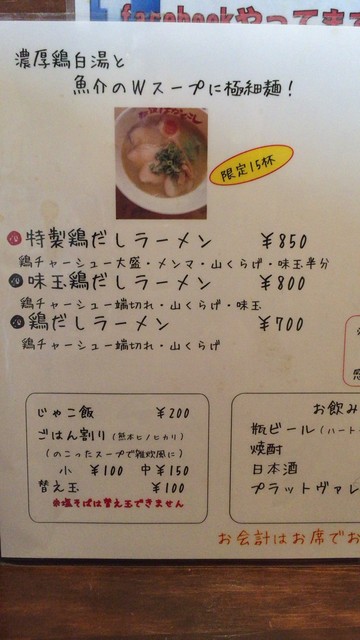 facebookやってま
濃厚鶏白湯と
魚介のWスープに極細麺！
限定15杯
特製鶏だしラーメン ￥850
鶏チャーシュー大盛・メンマ・山くらげ・味玉半分
味玉鶏だしラーメン ￥800
鶏チャーシュー端切れ・山くらげ・味玉
鶏だしラーメン ￥700
鶏チャーシュー端切れ・山くらげ
じゃこ飯 ￥200
ごはん割り（熊本ヒノヒカリ）
（のこったスープで雑炊風に）
小 ￥100 中￥150
替え玉 ￥100
※塩そばは替え玉できません
お飲み
瓶ビール（ハート
焼酎
日本酒
プラットヴァレ
お会計はお席でお